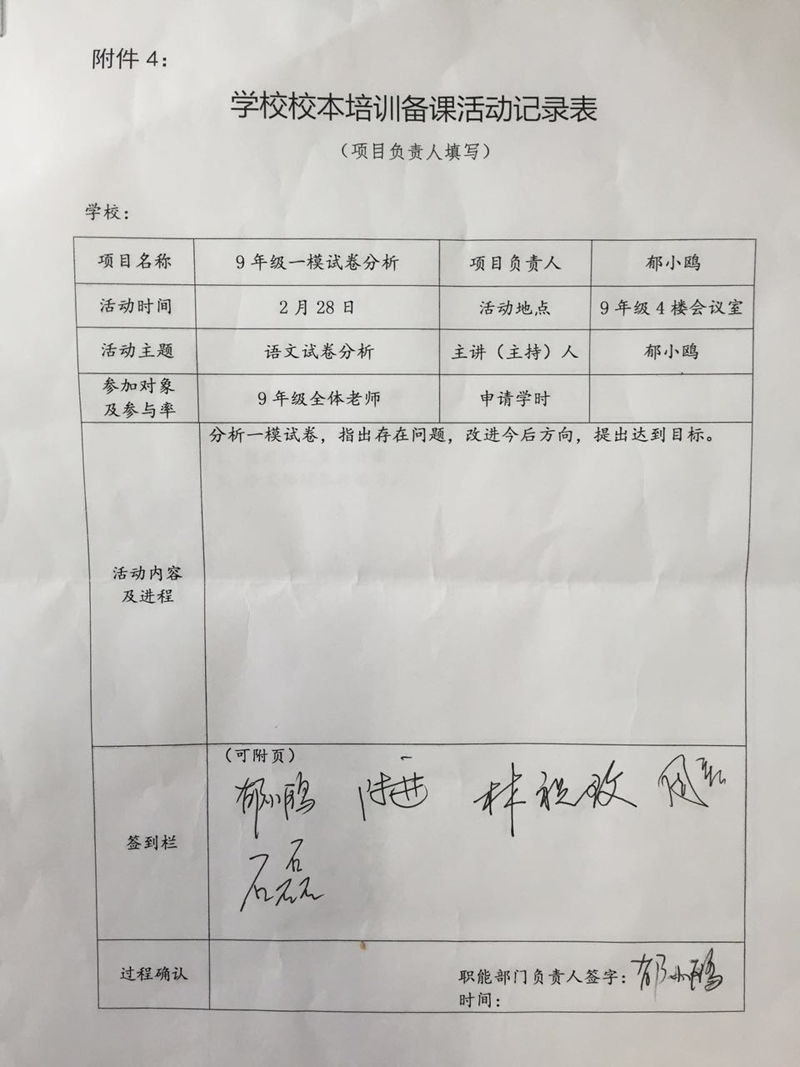 附件 4：
学校校本培训备课活动记录表
（项目负责人填写）
学校：
项目名称 9 年级一模试卷分析 项目负责人 郁小鸥
活动时间 2 月 28 日 活动地点 9 年级 4 楼会议室
活动主题 语文试卷分析 主讲（主持）人 郁小鸥
参加对象
及参与率 9 年级全体老师 申请学时
分析一模试卷，指出存在问题，改进今后方向，提出达到目标。
活动内容
及进程
（可附页）
郁小鸥 陆进 林
签到栏
石磊
过程确认 职能部门负责人签字：郁小鸥
时间：